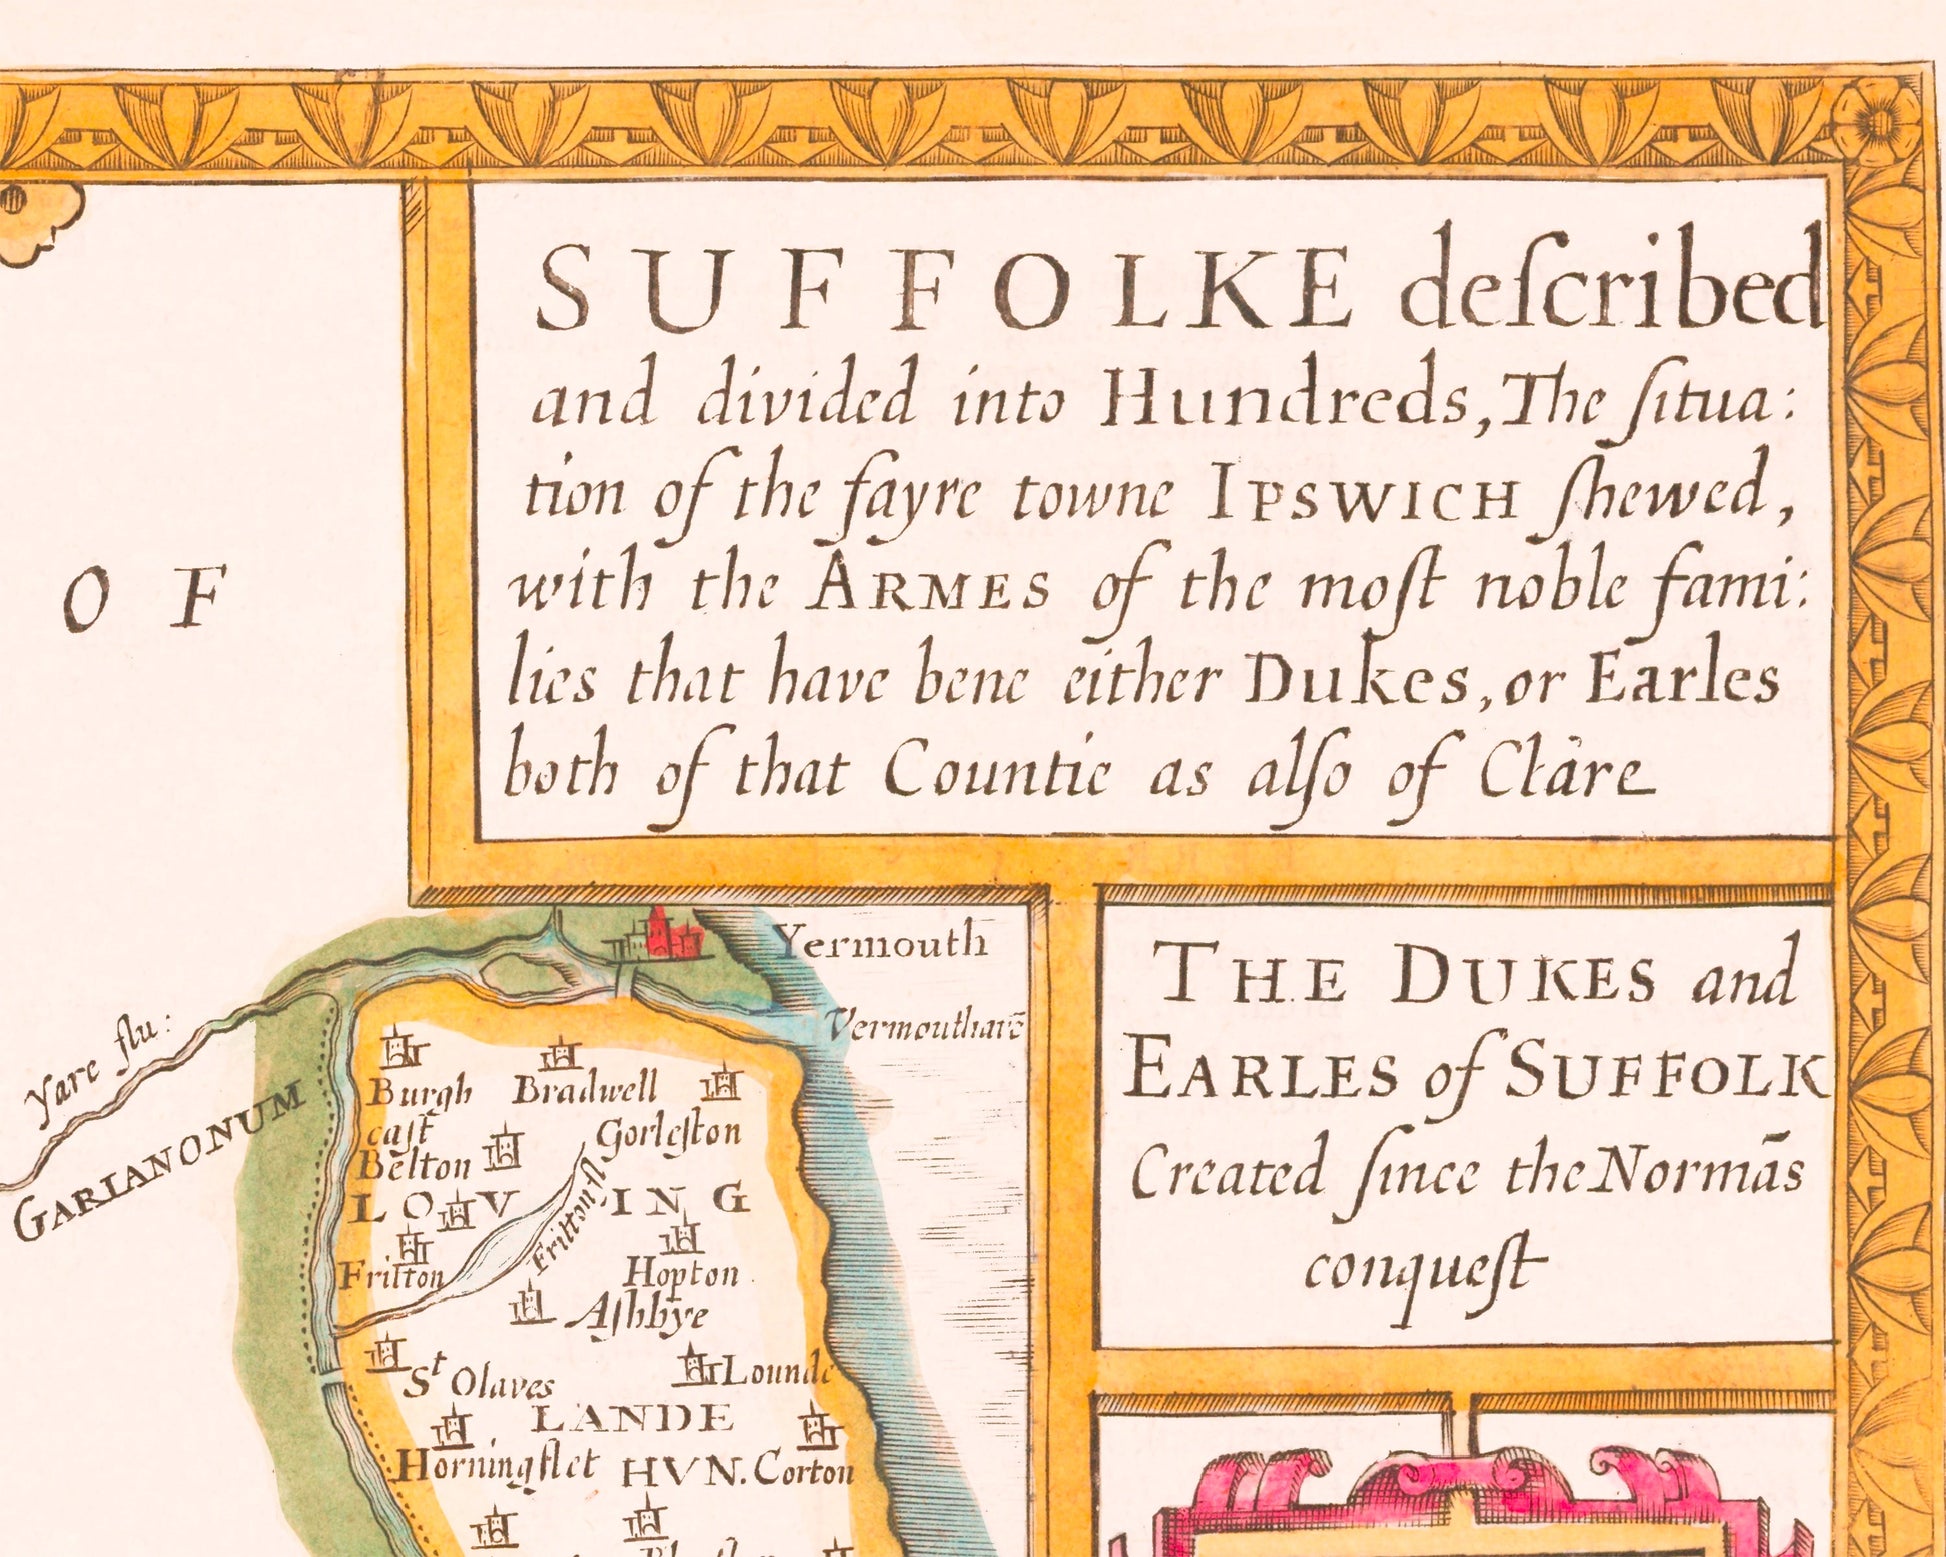 SUFFOLKE deſcribed
and divided into Hundreds, The ſitua:
tion of the fayre towne IPSWICH ſhewed,
with the ARMES of the moſt noble fami:
lies that have bene either Dukes, or Earles
both of that Countie as alſo of Clare
OF
Yermouth
Yare flu:
GARIANONUM
Burgh
caſt
Bradwell
Gorleſton
Belton
LOV ING
Fritton
Fritton fl
Hopton
Aſhbye
St Olaves
Lounde
LANDE
Horningflet
HVN.
Corton
THE DUKES and
EARLES of SUFFOLK
Created ſince the Normãs
conqueſt